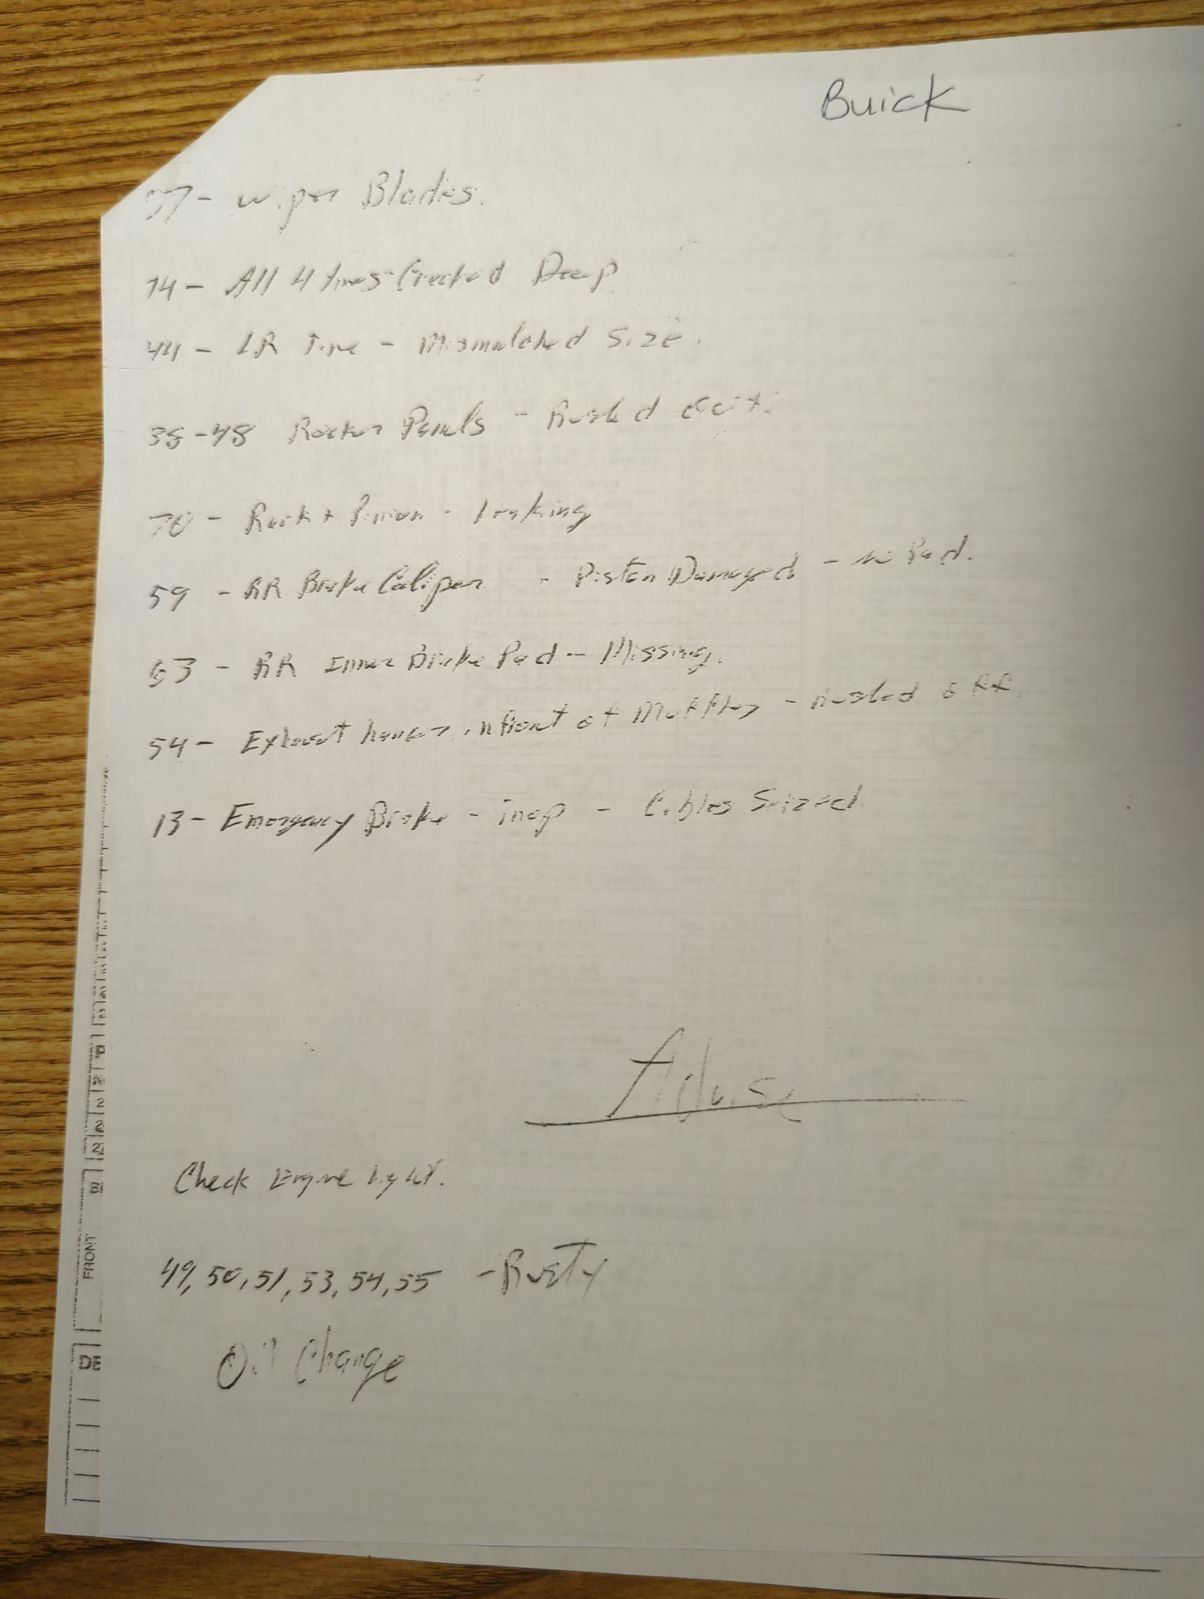 Buick
37- wiper Blades.
74- All 4 tires Cracked Deep
44- LR Tire - Mismatched Size.
38-48 Rocker Panels - Rusted out.
70- Rack + Pinion - leaking
59 - RR Brake Caliper - Piston Damaged - no Pad.
63 - RR Inner Brake Pad - Missing.
54- Exhaust hanger in front of Muffler - Rusted off.
13- Emergency Brake - inop - Cables Seized
Advise
Check Engine Light.
49, 50, 51, 53, 54, 55 - Rusty
Oil Change
FRONT
DE